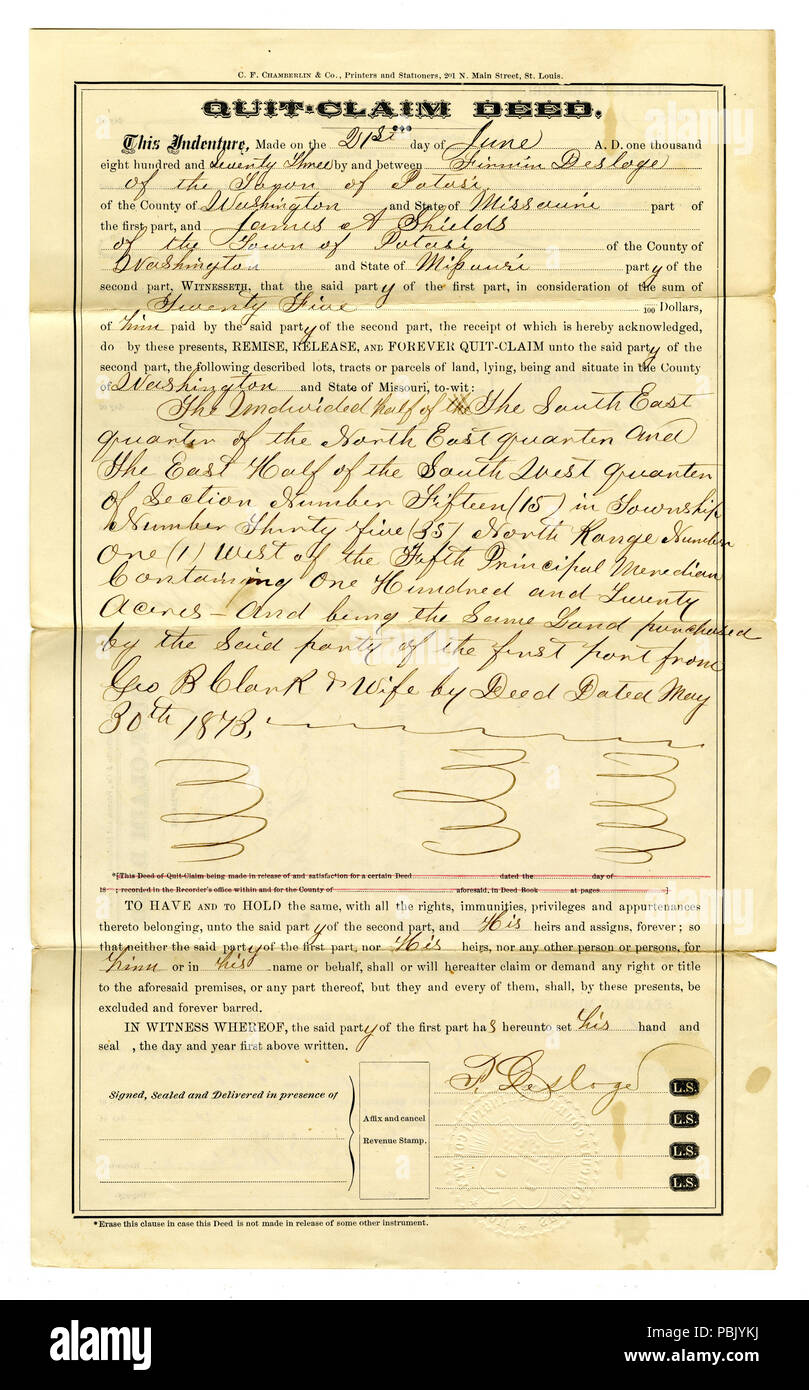 C. F. CHAMBERLIN & CO., Printers and Stationers, 201 N. Main Street, St. Louis.
QUIT-CLAIM DEED.
This Indenture, Made on the 21st day of June A. D. one thousand
eight hundred and Seventy Three by and between Firmin Desloge
of the Town of Potosi
of the County of Washington and State of Missouri part of
the first part, and James A Shields
of the Town of Potosi of the County of
Washington and State of Missouri party of the
second part, WITNESSETH, that the said party of the first part, in consideration of the sum of
Twenty Five 100 Dollars,
of him paid by the said party of the second part, the receipt of which is hereby acknowledged,
do by these presents, REMISE, RELEASE, AND FOREVER QUIT-CLAIM unto the said party of the
second part, the following described lots, tracts or parcels of land, lying, being and situate in the County
of Washington and State of Missouri, to-wit:
The Undivided half of the The South East
quarter of the North East quarter and
The East Half of the South West quarter
of Section Number Fifteen (15) in Township
Number Thirty five (35) North Range Number
One (1) West of the Fifth Principal Meredian
Containing One Hundred and Twenty
Acres - And being the Same Land purchased
by the Said party of the first part from
Geo B Clark & Wife by Deed Dated May
30th 1873,
*[This Deed of Quit-Claim being made in release of and satisfaction for a certain Deed dated the day of
18 ; recorded in the Recorder's office within and for the County of aforesaid, in Deed Book at pages ]
TO HAVE AND TO HOLD the same, with all the rights, immunities, privileges and appurtenances
thereto belonging, unto the said party of the second part, and His heirs and assigns, forever; so
that neither the said party of the first part, nor His heirs, nor any other person or persons, for
him or in his name or behalf, shall or will hereafter claim or demand any right or title
to the aforesaid premises, or any part thereof, but they and every of them, shall, by these presents, be
excluded and forever barred.
IN WITNESS WHEREOF, the said party of the first part has hereunto set his hand and
seal , the day and year first above written.
F. Desloge L.S.
Signed, Sealed and Delivered in presence of
Affix and cancel
Revenue Stamp.
L.S.
L.S.
L.S.
*Erase this clause in case this Deed is not made in release of some other instrument.
alamy
Image ID: PBJYKJ
www.alamy.com